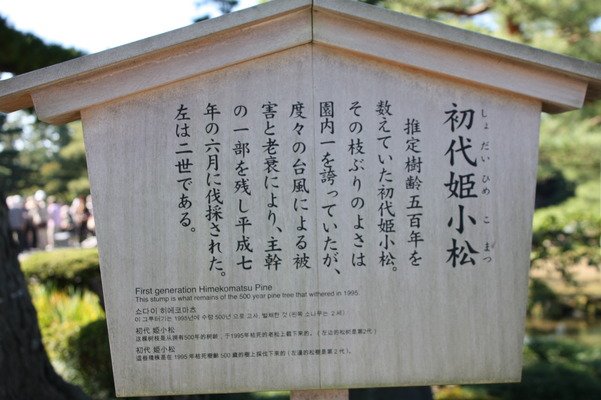 しょだいひめこまつ
初代姫小松
推定樹齢五百年を
数えていた初代姫小松。
その枝ぶりのよさは
園内一を誇っていたが、
度々の台風による被
害と老衰により、主幹
の一部を残し平成七
年の六月に伐採された。
左は二世である。
First generation Himekomatsu Pine
This stump is what remains of the 500 year pine tree that withered in 1995.
쇼다이 히메코마츠
初代 姫小松
初代 姫小松